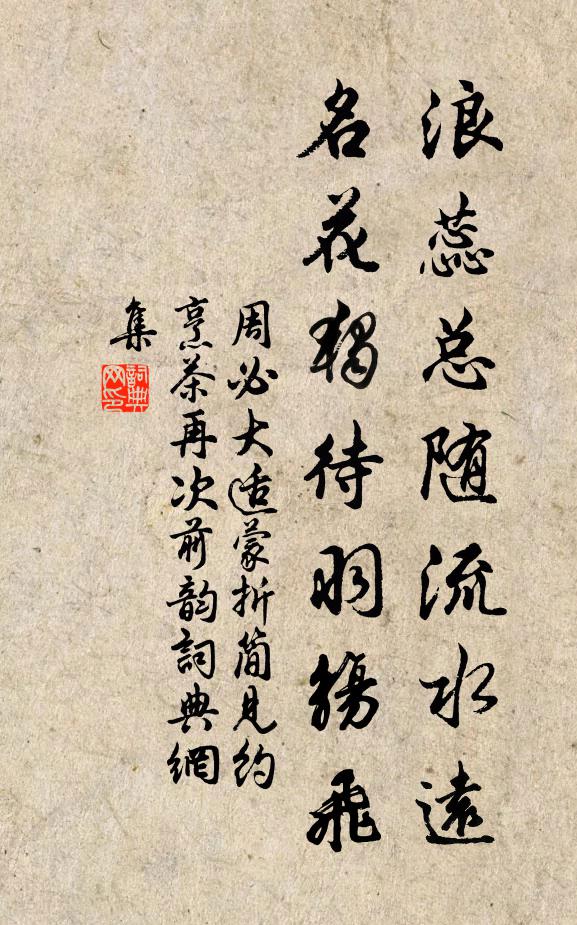 浪蕊总随流水远
名花独待羽觞飞
周必大适蒙折简见约
烹茶再次前韵词典網
集
詞典網印